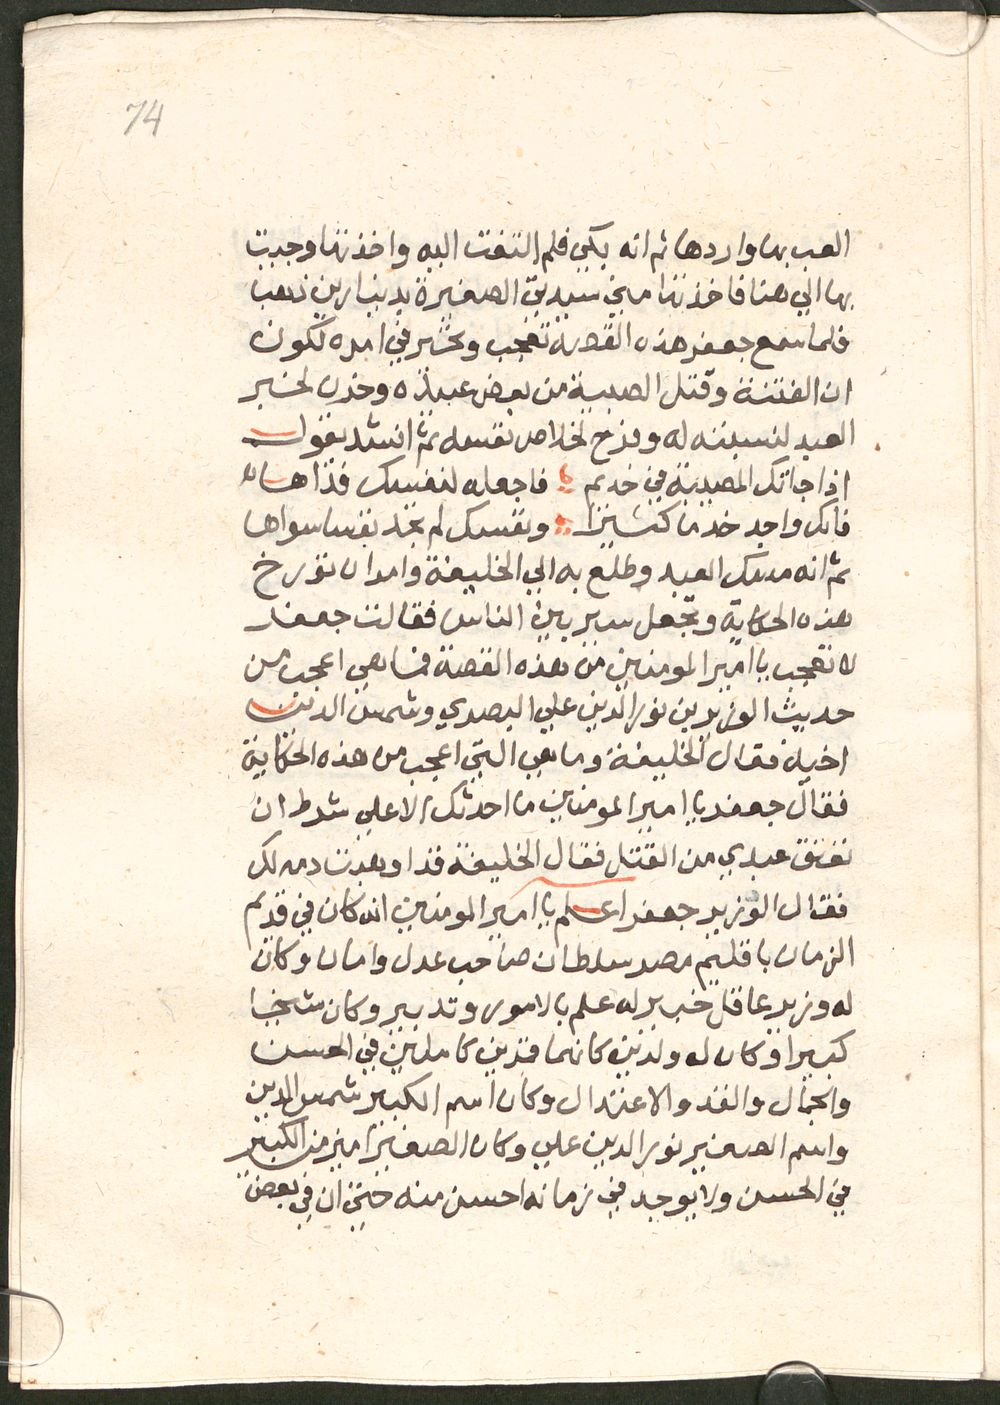 74
العب بها واردها ثم انه بكي فلم التفت اليه واخذتها وجيت
بها الي هنا فاخذتها مني سيدتي الصغيرة بدينارين ذهب
فلما سمع جعفر هذه القصة تعجب وتحير في امره لكون
ان الفتنة وقتل الصبية من بعض عبيده وحزن لخبر
العبد لنسبته له وفرح لخلاص نفسه ثم انشد يقول
اذا جاتك المصيبة في خديم فاجعله لنفسك فداها
فانك واجد خدما كثيرا ونفسك لم تجد نفسا سواها
ثم انه مسك العبد وطلع به الي الخليفة وامر ان تورخ
هذه الحكاية وتجعل سير بين الناس فقالت جعفر
لا تعجب يا امير المومنين من هذه القصة فما هي اعجب من
حديث الوزيرين نور الدين علي البصري وشمس الدين
اخيه فقال الخليفة وما هي التي اعجب من هذه الحكاية
فقال جعفر يا امير المومنين ما احدثك الا علي شرط ان
تعتق عبدي من القتل فقال الخليفة قد اوهبت دمه لك
فقال الوزير جعفر اعلم يا امير المومنين انه كان في قديم
الزمان باقليم مصر سلطان صاحب عدل وامان وكان
له وزير عاقل خبير له علم بالامور وتدبير وكان شيخا
كبيرا وكان له ولدين كانهما قمرين كاملين في الحسن
والجمال والقد والاعتدال وكان اسم الكبير شمس الدين
واسم الصغير نور الدين علي وكان الصغير اميز من الكبير
في الحسن ولا يوجد في زمانه احسن منه حتي ان في بعض